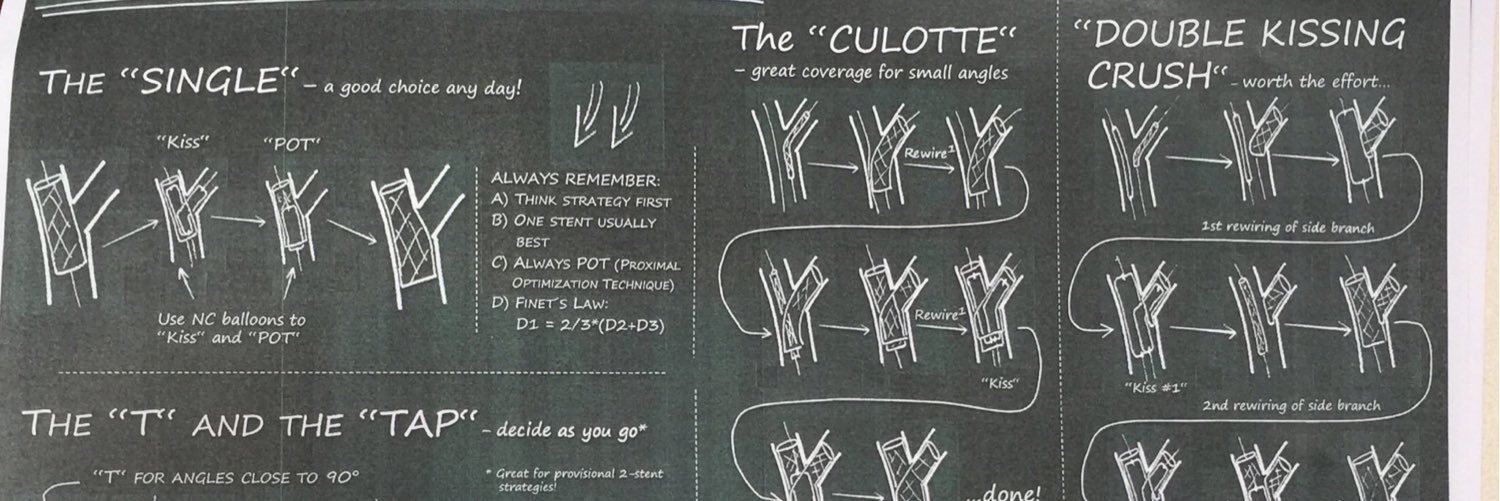 THE “SINGLE“ – a good choice any day!
“Kiss“
“POT“
Use NC balloons to
“Kiss“ and “POT“
ALWAYS REMEMBER:
A) THINK STRATEGY FIRST
B) ONE STENT USUALLY
BEST
C) ALWAYS POT (PROXIMAL
OPTIMIZATION TECHNIQUE)
D) FINET'S LAW:
D1 = 2/3*(D2+D3)
THE “T“ AND THE “TAP“ – decide as you go*
“T“ FOR ANGLES CLOSE TO 90°
* Great for provisional 2-stent
strategies!
The “CULOTTE“
– great coverage for small angles
Rewire¹
Rewire¹
“Kiss“
...done!
“DOUBLE KISSING
CRUSH“ - worth the effort...
1st rewiring of side branch
“Kiss #1“
2nd rewiring of side branch